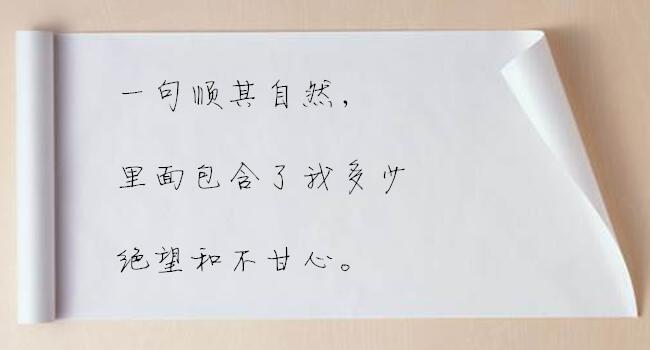 一句顺其自然，
里面包含了我多少
绝望和不甘心。